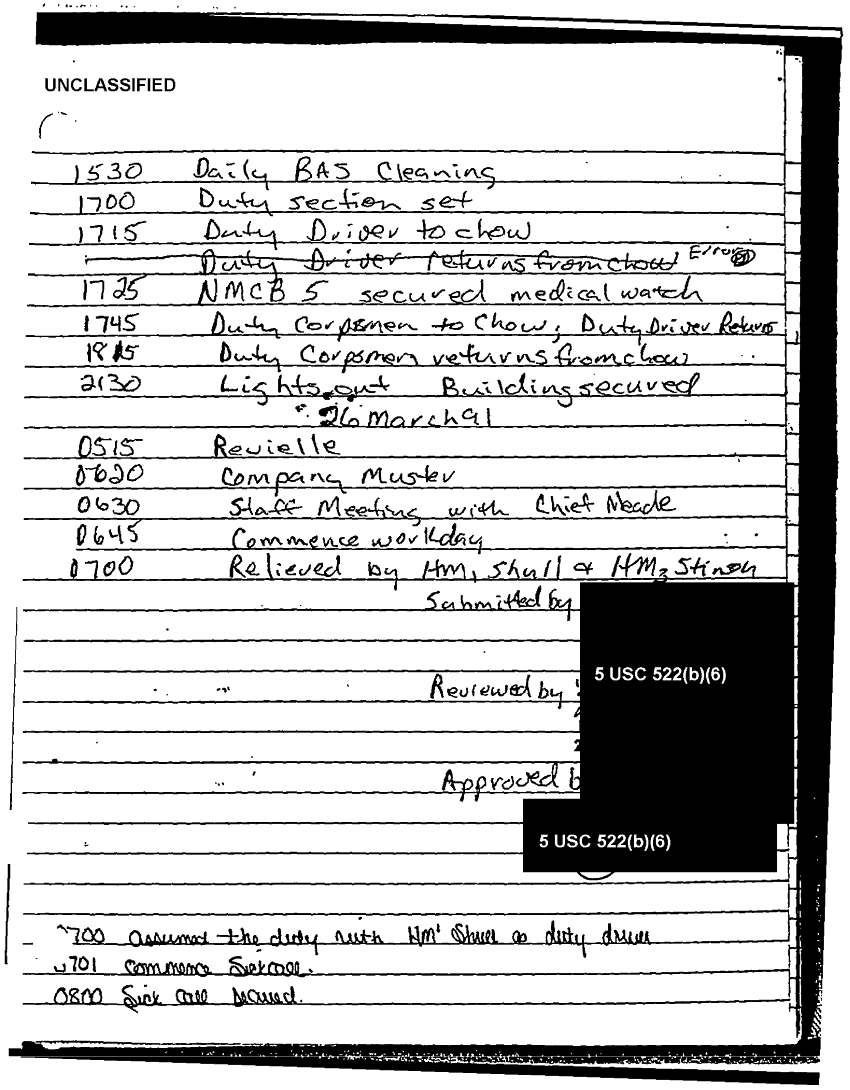 UNCLASSIFIED
1530 Daily BAS Cleaning
1700 Duty section set
1715 Duty Driver to chow
Duty Driver returns from chow Error
1725 NMCB 5 secured medical watch
1745 Duty Corpsmen to Chow; Duty Driver Returns
1815 Duty Corpsmen returns from chow
2130 Lights out Building secured
26 March 91
0515 Revielle
0620 Company Muster
0630 Staff Meeting with Chief Meade
0645 Commence workday
0700 Relieved by HM1 Shull & HM3 Stinson
Submitted by
5 USC 522(b)(6)
Reviewed by
Approved b
5 USC 522(b)(6)
700 assumed the duty with HM1 Shull as duty driver
701 Commence Sick call.
0800 Sick call secured.